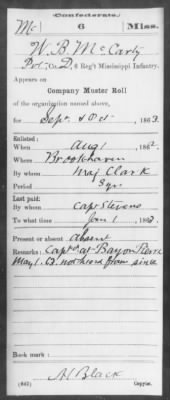 Confederate.
Mc 6 Miss.
W. B. Mc Carty
Pvt, Co. D, 6 Reg't Mississippi Infantry.
Appears on
Company Muster Roll
of the organization named above,
for Sept. & Oct., 1863.
Enlisted:
When Aug 1, 1862.
Where Brookhaven
By whom Maj Clark
Period 3 yrs
Last paid:
By whom Capt Stevens
To what time Jan 1, 1863.
Present or absent Absent
Remarks: Capt'd at Bayou Pierre
May 1, 63. not heard from since
Book mark:
(642) Copyist.